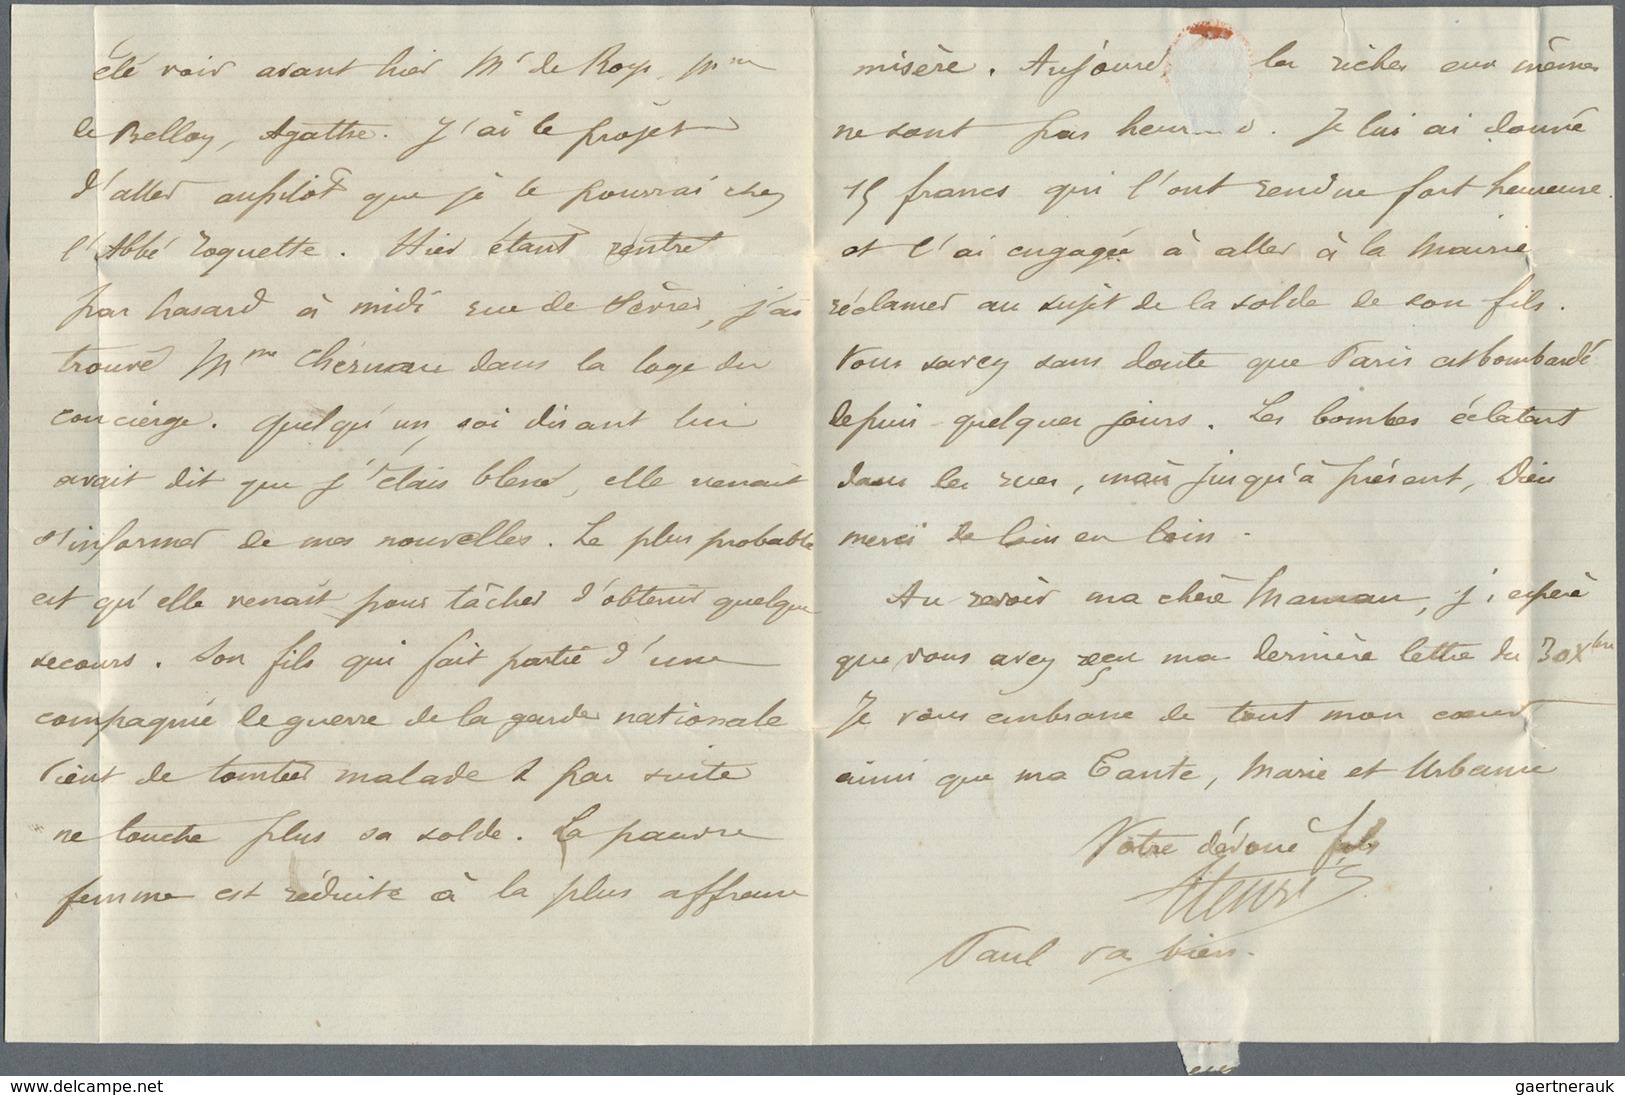 été voir avant hier Mr de Roys, Mme
de Belloy, Agathe. J'ai le projet
d'aller aussitôt que je le pourrai chez
l'Abbé Roquette. Hier étant rentré
par hasard à midi rue de Sèvres, j'ai
trouvé Mme dans la loge du
concierge. Quelqu'un soi disant lui
avait dit que j'étais blessé, elle venait
s'informer de mes nouvelles. Le plus probable
est qu'elle venait pour tâcher d'obtenir quelque
secours. Son fils qui fait partie d'une
compagnie de guerre de la garde nationale
vient de tomber malade & par suite
ne touche plus sa solde. La pauvre
femme est réduite à la plus affreuse
misère. Aujourd les riches eux mêmes
ne sont pas . Je lui ai donné
15 francs qui l'ont rendue fort heureuse
et l'ai engagée à aller à la Mairie
réclamer au sujet de la solde de son fils.
Vous savez sans doute que Paris est bombardé
depuis quelques jours. Les bombes éclatent
dans les rues, mais jusqu'à présent, Dieu
merci de loin en loin.
Au revoir ma chère Maman, j'espère
que vous avez reçu ma dernière lettre du 30 Xbre
Je vous embrasse de tout mon coeur
ainsi que ma Tante, Marie et Urbanie
Votre dévoué fils
Henri
Paul va bien.
www.delcampe.net
gaertnerauk